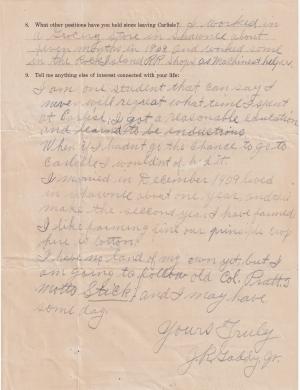 8. What other positions have you held since leaving Carlisle? I worked in
a Grocing Store in Shawnee about
seven months in 1909 and worked some
in the Rock Island R.R. shops as Machines helper.
9. Tell me anything else of interest connected with your life:
I am one student that can say I
never will regreat what time I spent
at Carlise, I got a reasonable education
and learned to be industious
When if I hadn't got the chance to go to
Carlisle I wouldnt of had it.
I married in December 1909 lived
in Shawnee about one year, and this
make the second year I have farmed
I like farming and our principle crop
here is cotton.
I have no land of my own yet, but I
am going to follow old Col. Pratt's
motto Stick, and I may have
some day.
Yours Truly
J.R. Gaddy Jr.